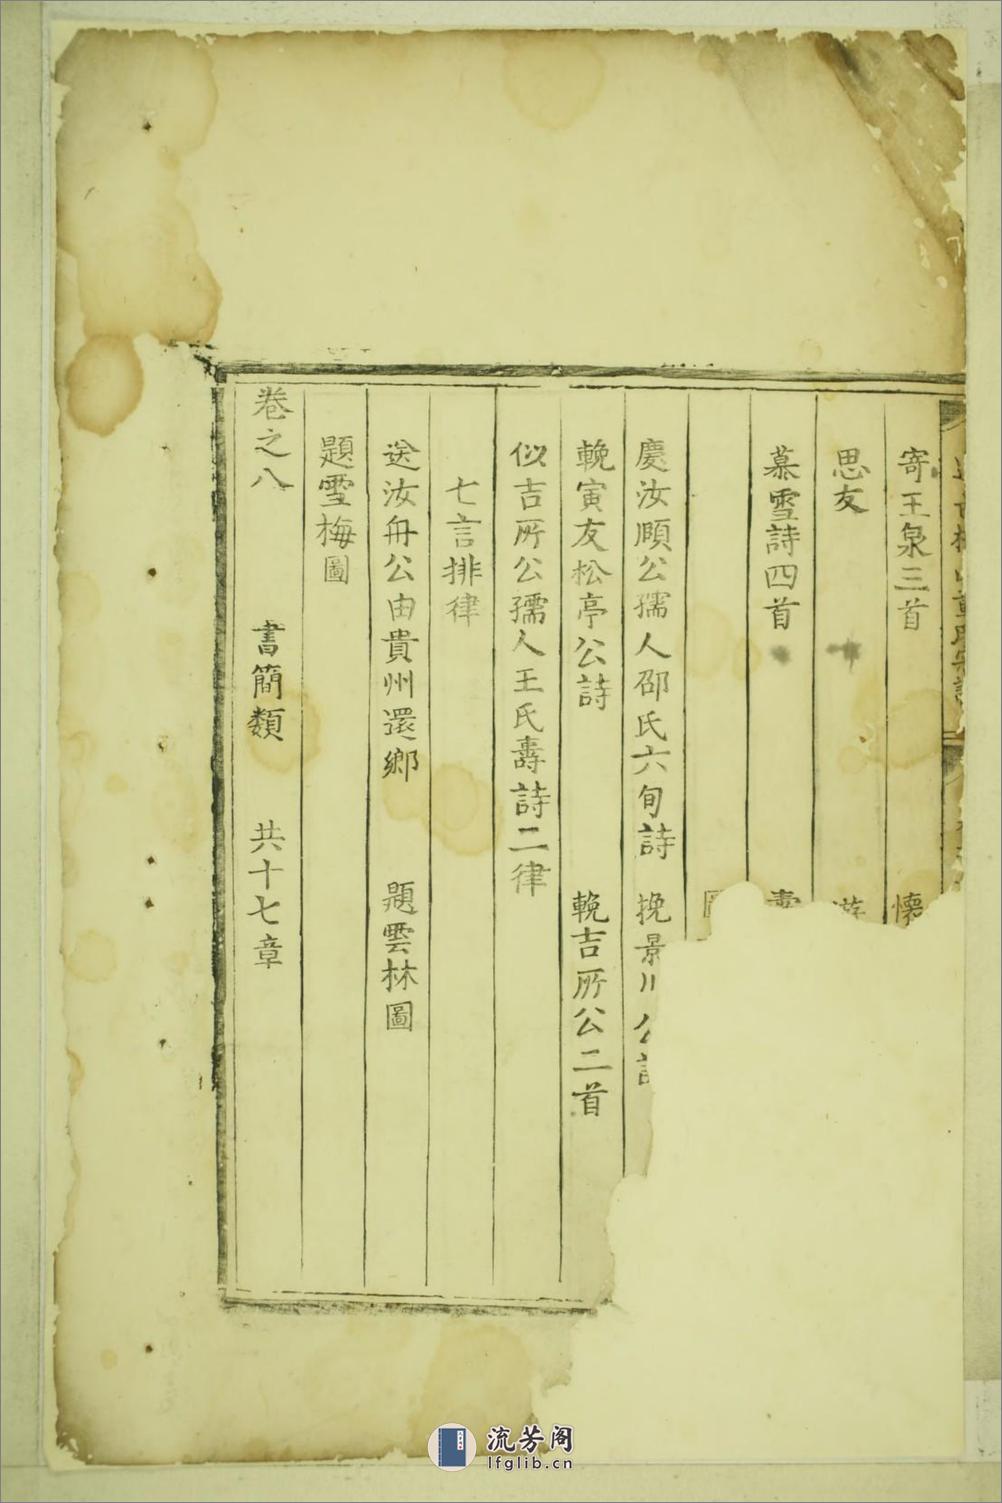 寄王泉三首 懷
思友 遊
慕雪詩四首 壽
慶汝頤公孺人邵氏六旬詩 挽景川公詩
輓寅友松亭公詩 輓吉所公二首
似吉所公孺人王氏壽詩二律
七言排律
送汝舟公由貴州還鄉 題雲林圖
題雪梅圖
卷之八 書簡類 共十七章
流芳阁
lfglib.cn